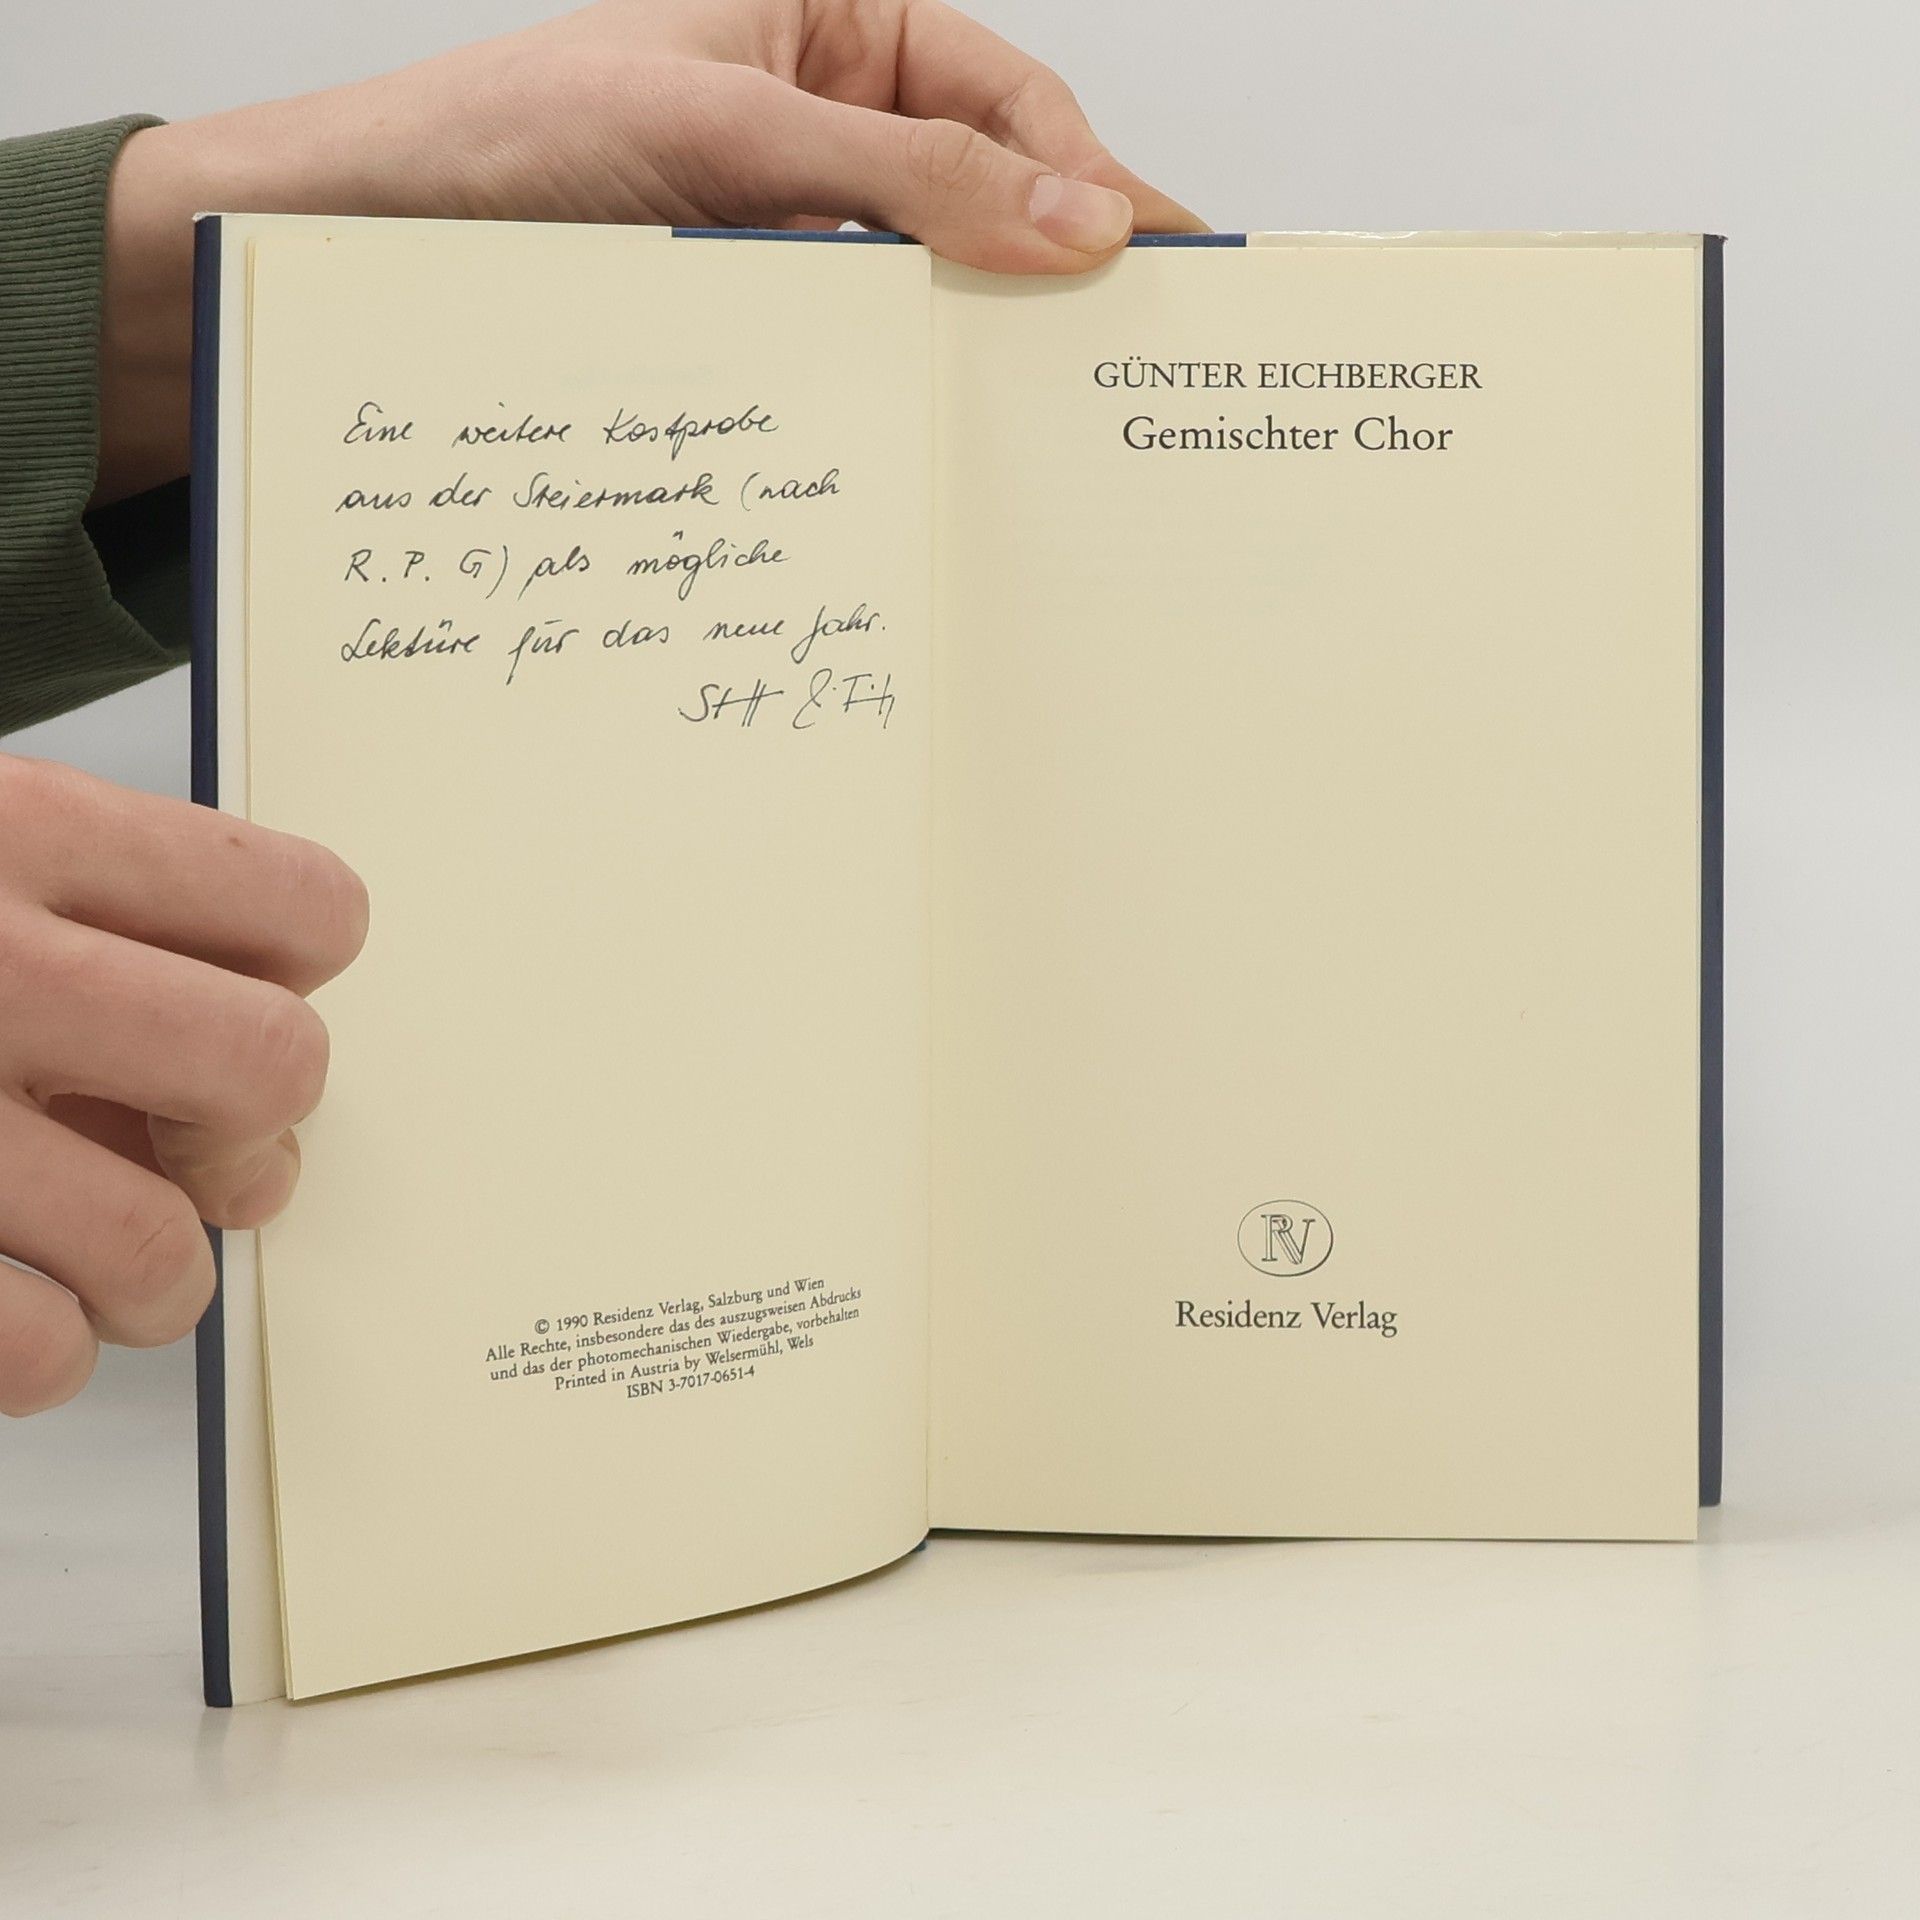 Eine weitere Kostprobe
aus der Steiermark (nach
R. P. G) als mögliche
Lektüre für das neue Jahr.
© 1990 Residenz Verlag, Salzburg und Wien
Alle Rechte, insbesondere das des auszugsweisen Abdrucks
und das der photomechanischen Wiedergabe, vorbehalten
Printed in Austria by Welsermühl, Wels
ISBN 3-7017-0651-4
GÜNTER EICHBERGER
Gemischter Chor
RV
Residenz Verlag